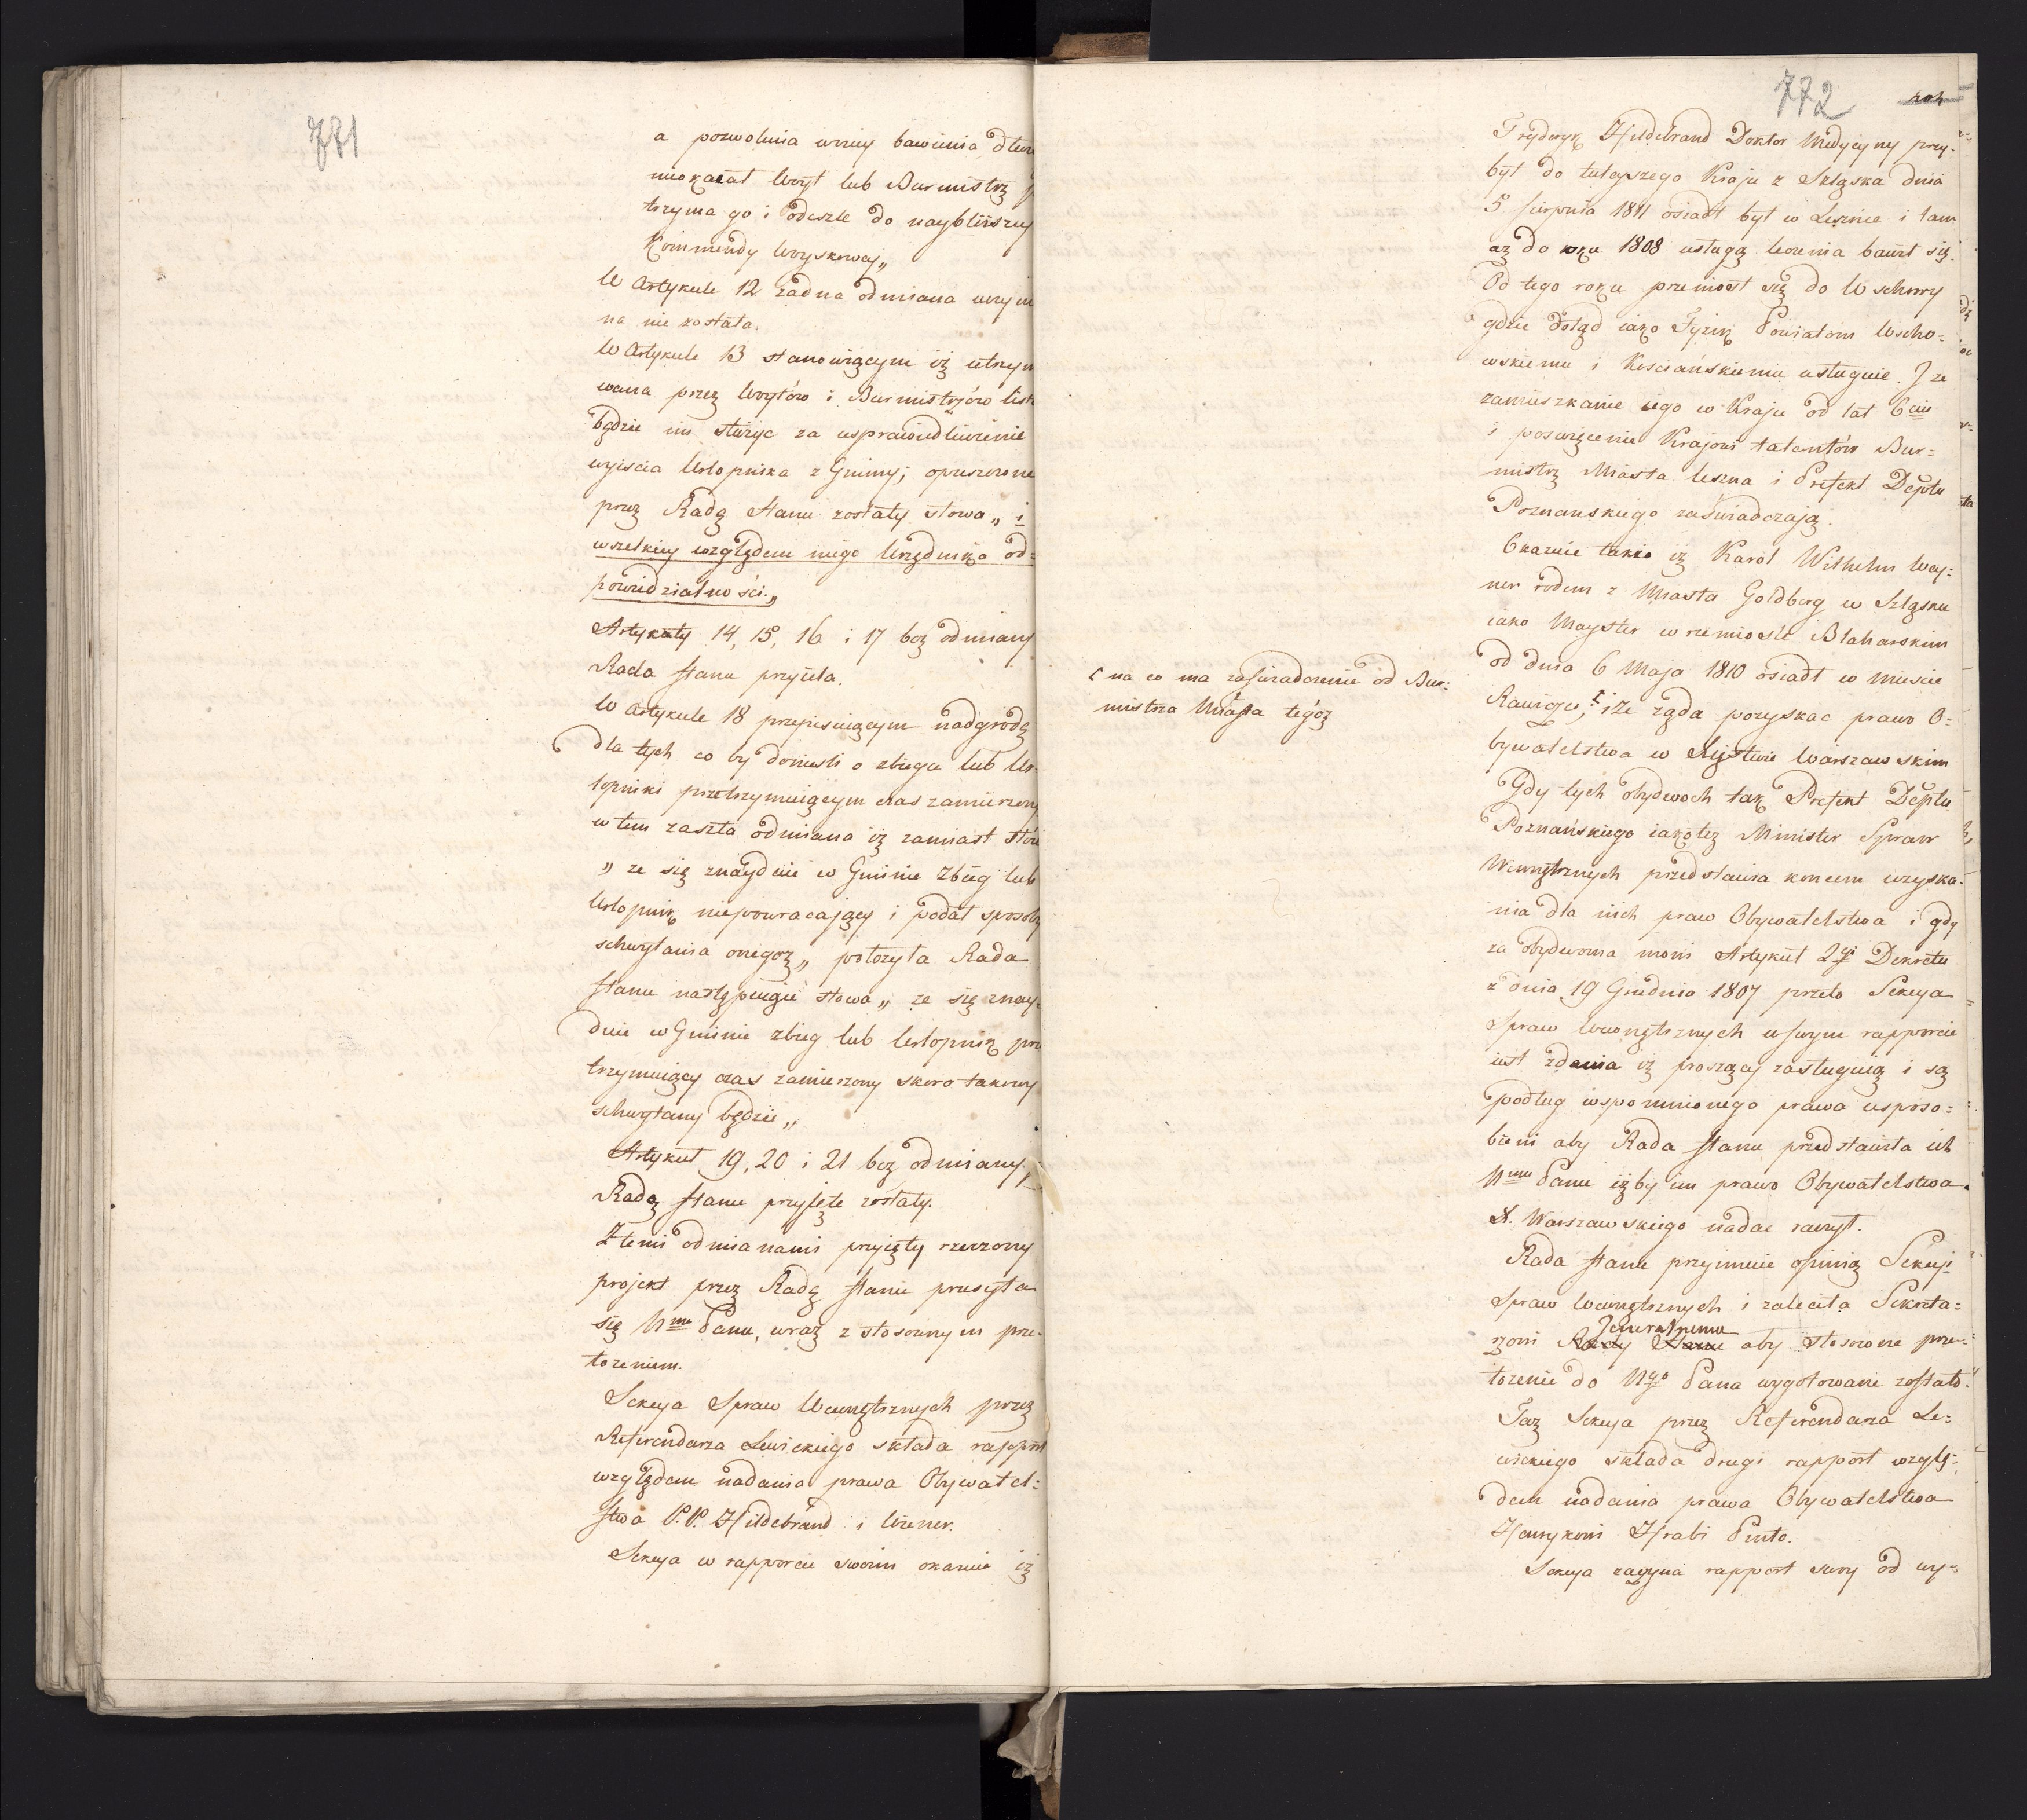 771
a pozwolenia wniey bawienia dłuż
nieokazał Woyt lub Burmistrz
trzyma go i odeszle do naybliższey
Kommendy Woyskowey„
W Artykule 12 żadna odmiana uczynio
na nie została.
W Artykule 13 stanowiącym iż utrzym
wana przez Woytów i Burmistrzów lista
będzie im służyc za usprawiedliwienie
wyiscia Urlopnika z Gminy; opuszczone
przez Radę Stanu zostały słowa „ i
wszelkiey względem niego Urzędnika od=
powiedzialności.„
Artykuły 14, 15, 16 i 17 bez odmiany
Rada Stanu przyieła.
W Artykule 18 przepisuiącym nadgrodę
dla tych co by doniesli o zbiegu lub Ur=
lopniki przetrzymuiącym czas zamierzony
w tem zaszła odmiana iż zamiast słów
„ ze się znayduie w Gminie Zbieg lub
Urlopnik niepowracający i podał sposoby
schwytania onegoz„ położyła Rada
Stanu następuiące słowa „ ze się znay=
duie w Gminie zbieg lub Urlopnik prze
trzymuiący czas zamierzony skoro takowy
schwytany będzie„
Artykuł 19, 20 i 21 bez odmiany
Radę Stanu przyięte zostały.
Z temi odmianami przyięty rzeczony
projekt przez Radę Stanu przesyła
się Nmu Panu, wraz z stosownym prze=
łozeniem.
Sekcya Spraw Wewnętrznych przez
Referendarza Lewickiego składa rapport
względem nadania prawa Obywatel=
stwa P.P. Hildebrand i Wiener.
Sekcya w rapporcie swoim okazuie iż
772
Fryderyk Hildebrand Doktor Medycyny przy=
był do tutayszego Kraju z Szląska dnia
5 Sierpnia 1811 osiadł był w Lesznie i tam
aż do roku 1808 usługą leczenia bawił się.
Od tego roku przeniosł się do Wschowy
gdzie dotąd iako Fyzik Powiatom Wscho=
wskiemu i Kościańskiemu usługuie. I ze
zamieszkanie iego w Kraju od lat 6ciu
i poswięcenie Krajowi talentów Bur=
mistrz Miasta Leszna i Prefekt Deptu
Poznanskiego zaświadczają.
Okazuie takze iż Karol Wilhelm Wey=
ner rodem z Miasta Goldberg w Szląsku
iako Mayster w rzemiośle Blaharskim
od dnia 6 Maja 1810 osiadł w miescie
Rawiczu, [ i ze ządа pozyskac prawo O=
[ na co ma zaswiadczenie od Bur=
mistrza Miasta tegoż
bywatelstwa w Xięstwie Warszawskim
Gdy tych obydwoch tak Prefekt Deptu
Poznańskiego iakotez Minister Spraw
Wewnętrznych przedstawia koncem uzyska=
nia dla nich praw Obywatelstwa i gdy
za obydwoma mowi Artykuł 2gi Dekretu
z dnia 19 Grudnia 1807 przeto Sekcya
Spraw Wewnętrznych w swym rapporcie
iest zdania iż proszący zasługuią i są
podług wspomnionego prawa usposo=
bieni aby Rada Stanu przedstawiła ich
Nmu Panu iżby im prawo Obywatelstwa
X. Warszawskiego nadac raczył.
Rada Stanu przyimuie opinię Sekcyi
Spraw Wewnętrznych i zaleciła Sekreta=
rzowi Rady Stanu Jeneralnemu aby stosowne prze=
łozenie do Ngo Pana wygotowane zostało.
Taz Sekcya przez Referendarza Le=
wickiego składa drugi rapport wzglę=
dem nadania prawa Obywatelstwa
Henrykowi Hrabi Pinto.
Sekcya zaczyna rapport swoy od wy=